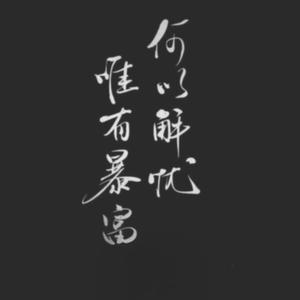 何以解忧
唯有暴富